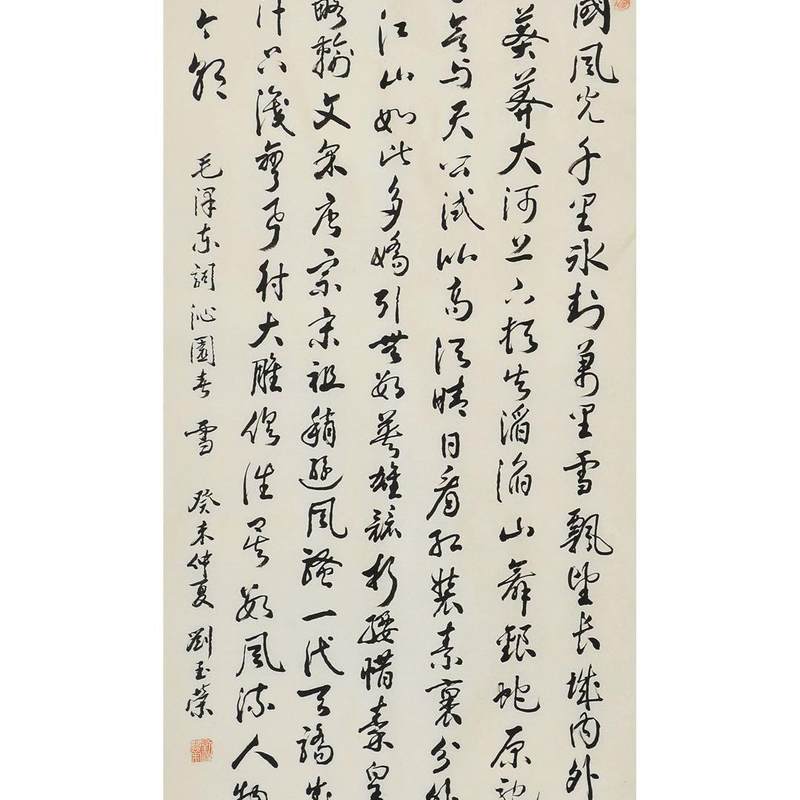 國風光千里冰封萬里雪飄望长城内外
莽莽大河上下顿失滔滔山舞銀蛇原馳
欲与天公試比高須晴日看红裝素裹分外
江山如此多嬌引無數英雄競折腰惜秦皇
略輸文采唐宗宋祖稍遜風騷一代天驕成
汗只識彎弓射大雕俱往矣數風流人物
今朝
毛泽东詞沁園春 雪 癸未仲夏 劉玉榮